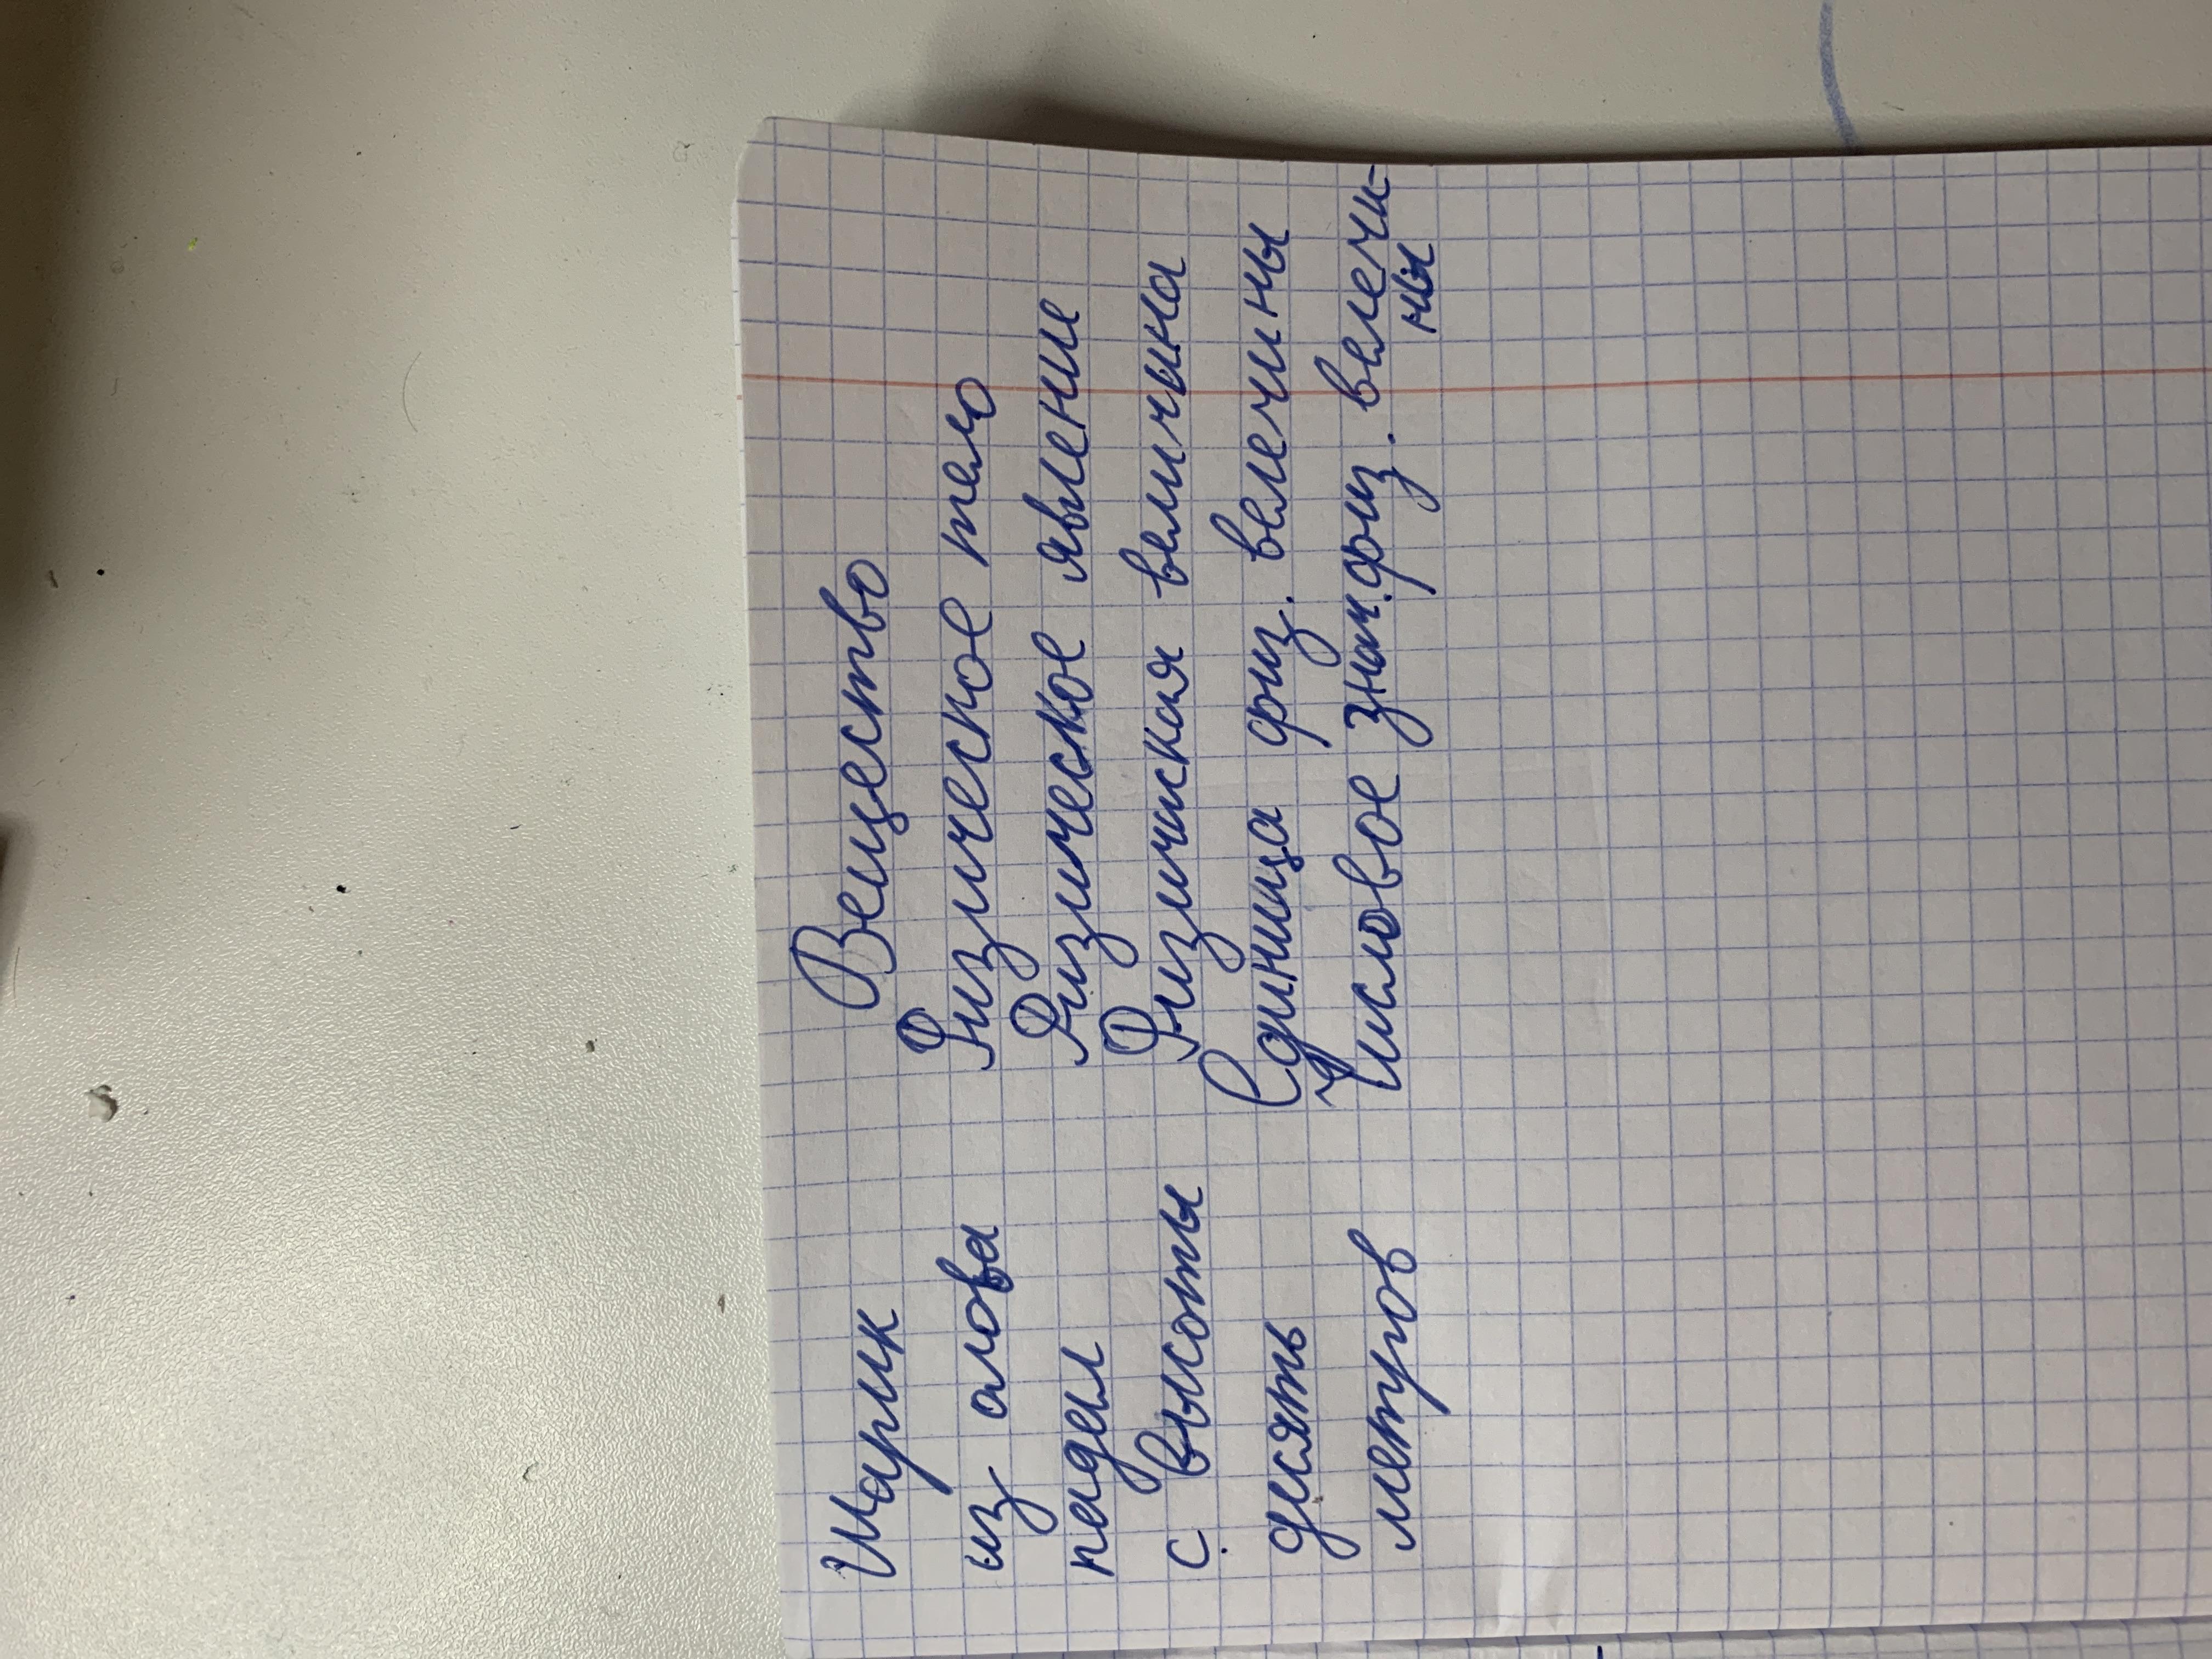 Шарик Вещество
из олова Физическое тело
падал Физическое явление
с высоты Физичиская величина
десять Единица физ. велечины
метров Числовое знач. физ. велечи-
ны